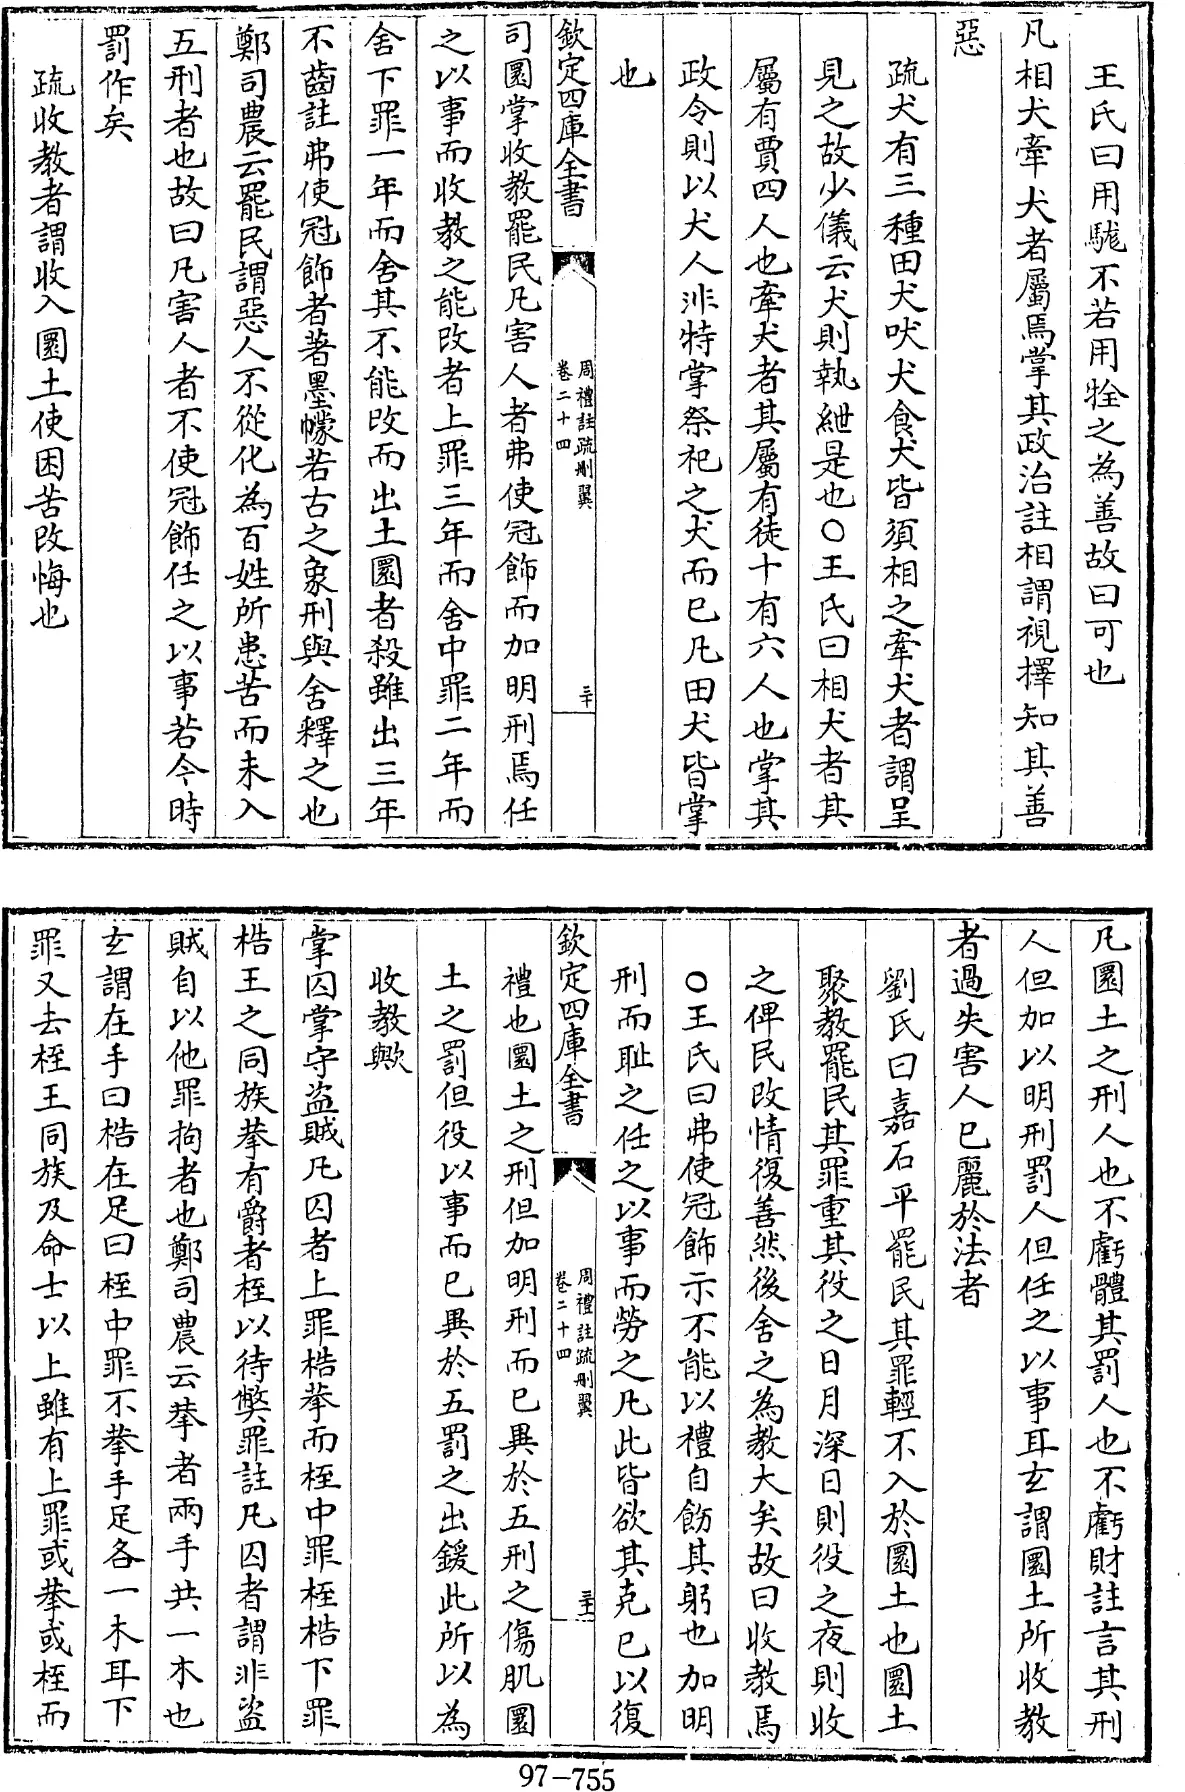 王氏曰用駹不若用牷之為善故曰可也
凡相犬牽犬者屬焉掌其政治註相謂視擇知其善
惡
疏犬有三種田犬吠犬食犬皆須相之牽犬者謂呈
見之故少儀云犬則執紲是也○王氏曰相犬者其
屬有賈四人也牽犬者其屬有徒十有六人也掌其
政令則以犬人非特掌祭祀之犬而已凡田犬皆掌
也
欽定四庫全書
周禮註疏刪翼
卷二十四
三十
司圜掌收教罷民凡害人者弗使冠飾而加明刑焉任
之以事而收教之能改者上罪三年而舍中罪二年而
舍下罪一年而舍其不能改而出土圜者殺雖出三年
不齒註弗使冠飾者著墨幪若古之象刑與舍釋之也
鄭司農云罷民謂惡人不從化為百姓所患苦而未入
五刑者也故曰凡害人者不使冠飾任之以事若今時
罰作矣
疏收教者謂收入圜土使困苦改悔也
凡圜土之刑人也不虧體其罰人也不虧財註言其刑
人但加以明刑罰人但任之以事耳玄謂圜土所收教
者過失害人已麗於法者
劉氏曰嘉石平罷民其罪輕不入於圜土也圜土
聚教罷民其罪重其役之日月深日則役之夜則收
之俾民改情復善然後舍之為教大矣故曰收教焉
○王氏曰弗使冠飾示不能以禮自飭其躬也加明
刑而耻之任之以事而勞之凡此皆欲其克已以復
欽定四庫全書
周禮註疏刪翼
卷二十四
三十一
禮也圜土之刑但加明刑而已異於五刑之傷肌圜
土之罰但役以事而已異於五罰之出鍰此所以為
收教歟
掌囚掌守盗賊凡囚者上罪梏拲而桎中罪桎梏下罪
梏王之同族拲有爵者桎以待弊罪註凡囚者謂非盗
賊自以他罪拘者也鄭司農云拲者兩手共一木也
玄謂在手曰梏在足曰桎中罪不拲手足各一木耳下
罪又去桎王同族及命士以上雖有上罪或拲或桎而
97-755